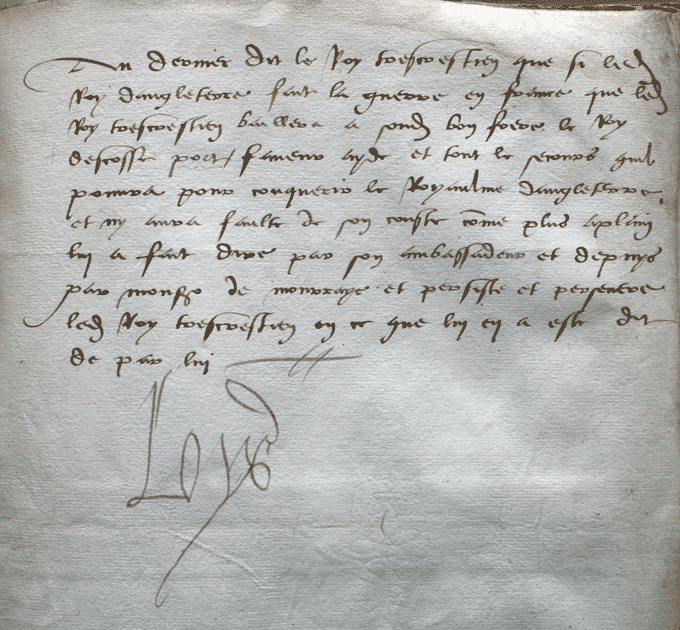 Au dernier dit le Roy trescrestien que si led
Roy dangleterre fait la guerre en france que led
Roy trescrestien baillera a sond bon frere le Roy
descosse port faveur ayde et tout le secours quil
pourra pour conquerir le Royaulme dangleterre
et ny aura faulte de son couste cōme plus aplain
lui a fait dire par son ambassadeur et depuys
par monsr de mourraye et persiste et persevere
led Roy trescrestien en ce que lui en a este dit
de par lui
Loys